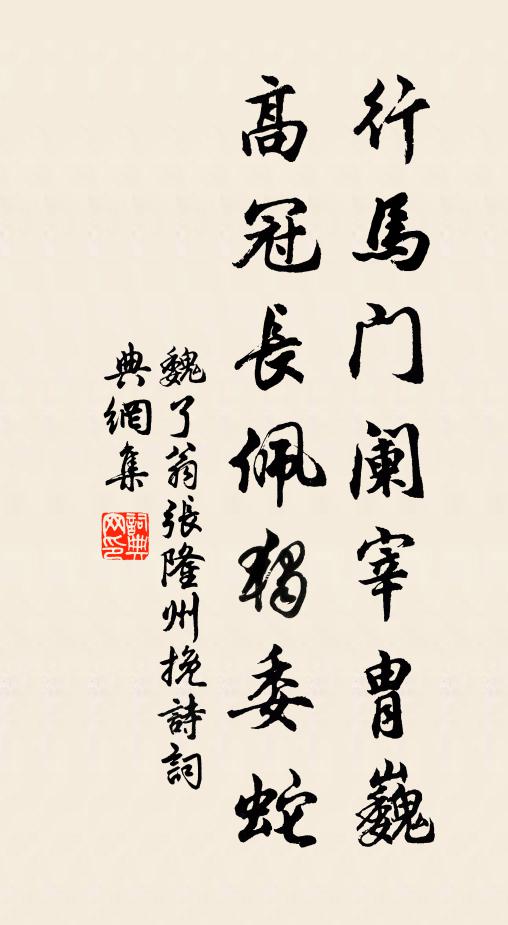 行馬门阑宰胄巍
高冠長佩獨委蛇
魏了翁張隆州挽詩詞
典網集
詞典网印